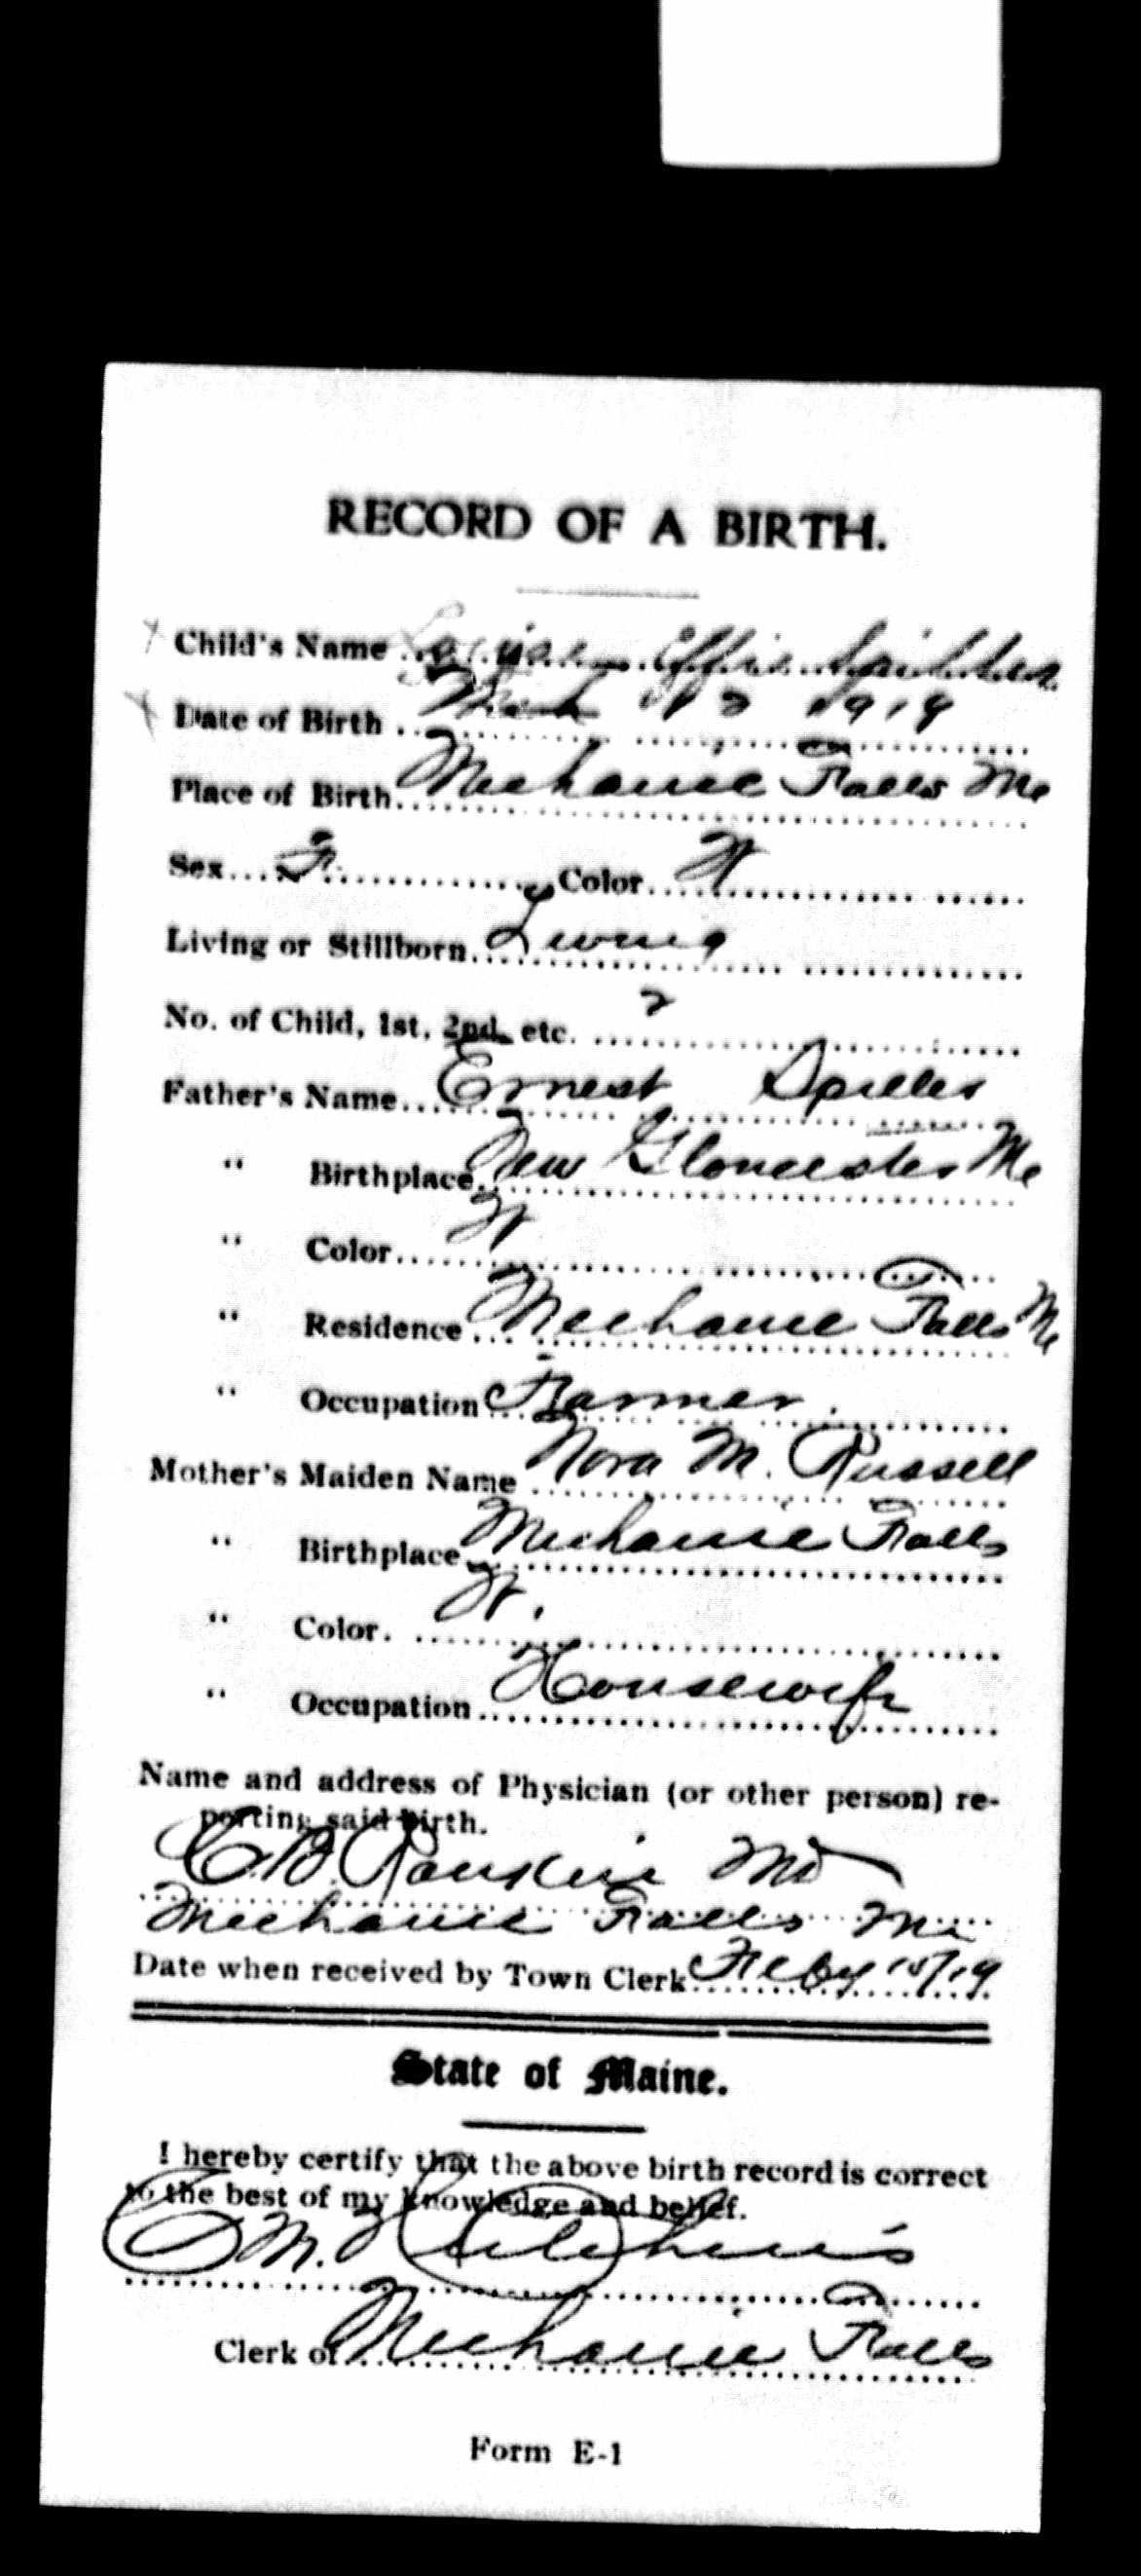 RECORD OF A BIRTH.
Child's Name Louise Effie
Date of Birth 1919
Place of Birth Mechanic Falls Me
Sex F Color W
Living or Stillborn Living
No. of Child, 1st, 2nd, etc. 2
Father's Name Ernest Spiller
" Birthplace New Gloucester Me
" Color W
" Residence Mechanic Falls Me
" Occupation Farmer
Mother's Maiden Name Nora M. Russell
" Birthplace Mechanic Falls
" Color. W.
" Occupation Housewife
Name and address of Physician (or other person) re-
porting said birth.
Rankin MD
Mechanic Falls Me
Date when received by Town Clerk Feby 15/19
State of Maine.
I hereby certify that the above birth record is correct
to the best of my knowledge and belief.
M. Hutchins
Clerk of Mechanic Falls
Form E-1